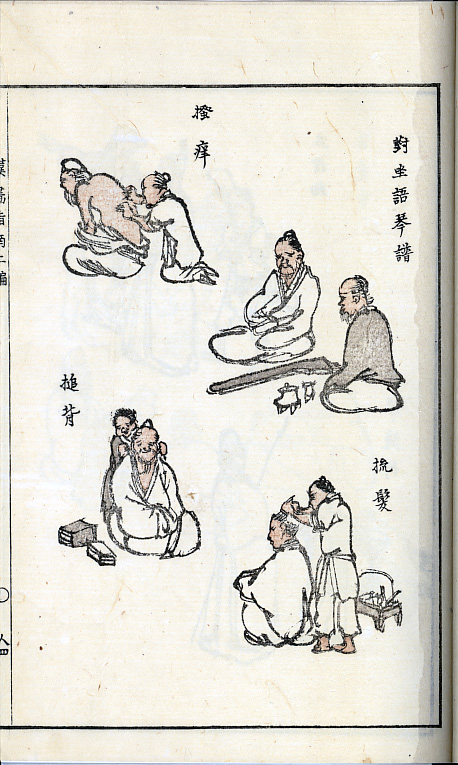 對坐語琴譜
梳髮
搔痒
搥背
漢畫指南二編
人四